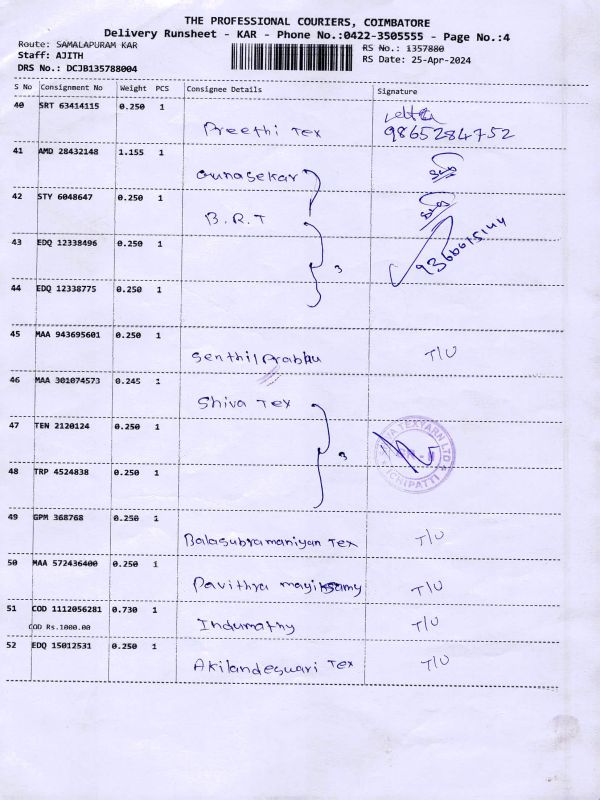 THE PROFESSIONAL COURIERS, COIMBATORE
Delivery Runsheet - KAR - Phone No.:0422-3505555 - Page No.:4
Route: SAMALAPURAM KAR
RS No.: 1357880
Staff: AJITH
RS Date: 25-Apr-2024
DRS No.: DCJB135788004
S No Consignment No Weight PCS Consignee Details Signature
40 SRT 63414115 0.250 1
Preethi Tex 9865284752
41 AMD 28432148 1.155 1
Gunasekar
42 STY 6048647 0.250 1
B.R.T
43 EDQ 12338496 0.250 1
3 9366675144
44 EDQ 12338775 0.250 1
45 MAA 943695601 0.250 1
Senthil Prabhu T/U
46 MAA 301074573 0.245 1
Shiva Tex
47 TEN 2120124 0.250 1
3
48 TRP 4524838 0.250 1
49 GPM 368768 0.250 1
Balasubramaniyan Tex T/U
50 MAA 572436400 0.250 1
Pavithra mayilsamy T/U
51 COD 1112056281 0.730 1
COD Rs.1000.00 Indumathy T/U
52 EDQ 15012531 0.250 1
Akilandeswari Tex T/U